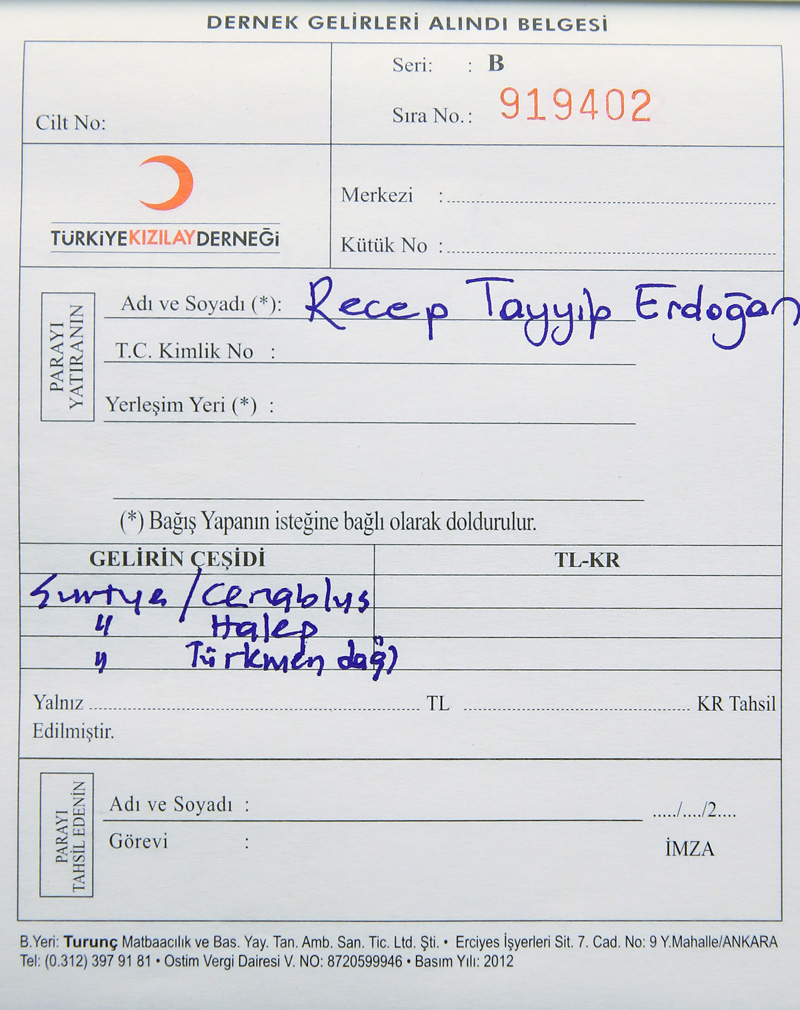 DERNEK GELİRLERİ ALINDI BELGESİ
Seri: : B
Cilt No:
Sıra No.: 919402
TÜRKİYEKIZILAYDERNEĞİ
Merkezi :
Kütük No :
PARAYI YATIRANIN
Adı ve Soyadı (*): Recep Tayyip Erdoğan
T.C. Kimlik No :
Yerleşim Yeri (*) :
(*) Bağış Yapanın isteğine bağlı olarak doldurulur.
GELİRİN ÇEŞİDİ TL-KR
Suriye / Cerablus
" Halep
" Türkmen dağı
Yalnız ........ TL ........ KR Tahsil
Edilmiştir.
PARAYI TAHSİL EDENİN
Adı ve Soyadı : ...../..../2....
Görevi : İMZA
B.Yeri: Turunç Matbaacılık ve Bas. Yay. Tan. Amb. San. Tic. Ltd. Şti. • Erciyes İşyerleri Sit. 7. Cad. No: 9 Y.Mahalle/ANKARA
Tel: (0.312) 397 91 81 • Ostim Vergi Dairesi V. NO: 8720599946 • Basım Yılı: 2012